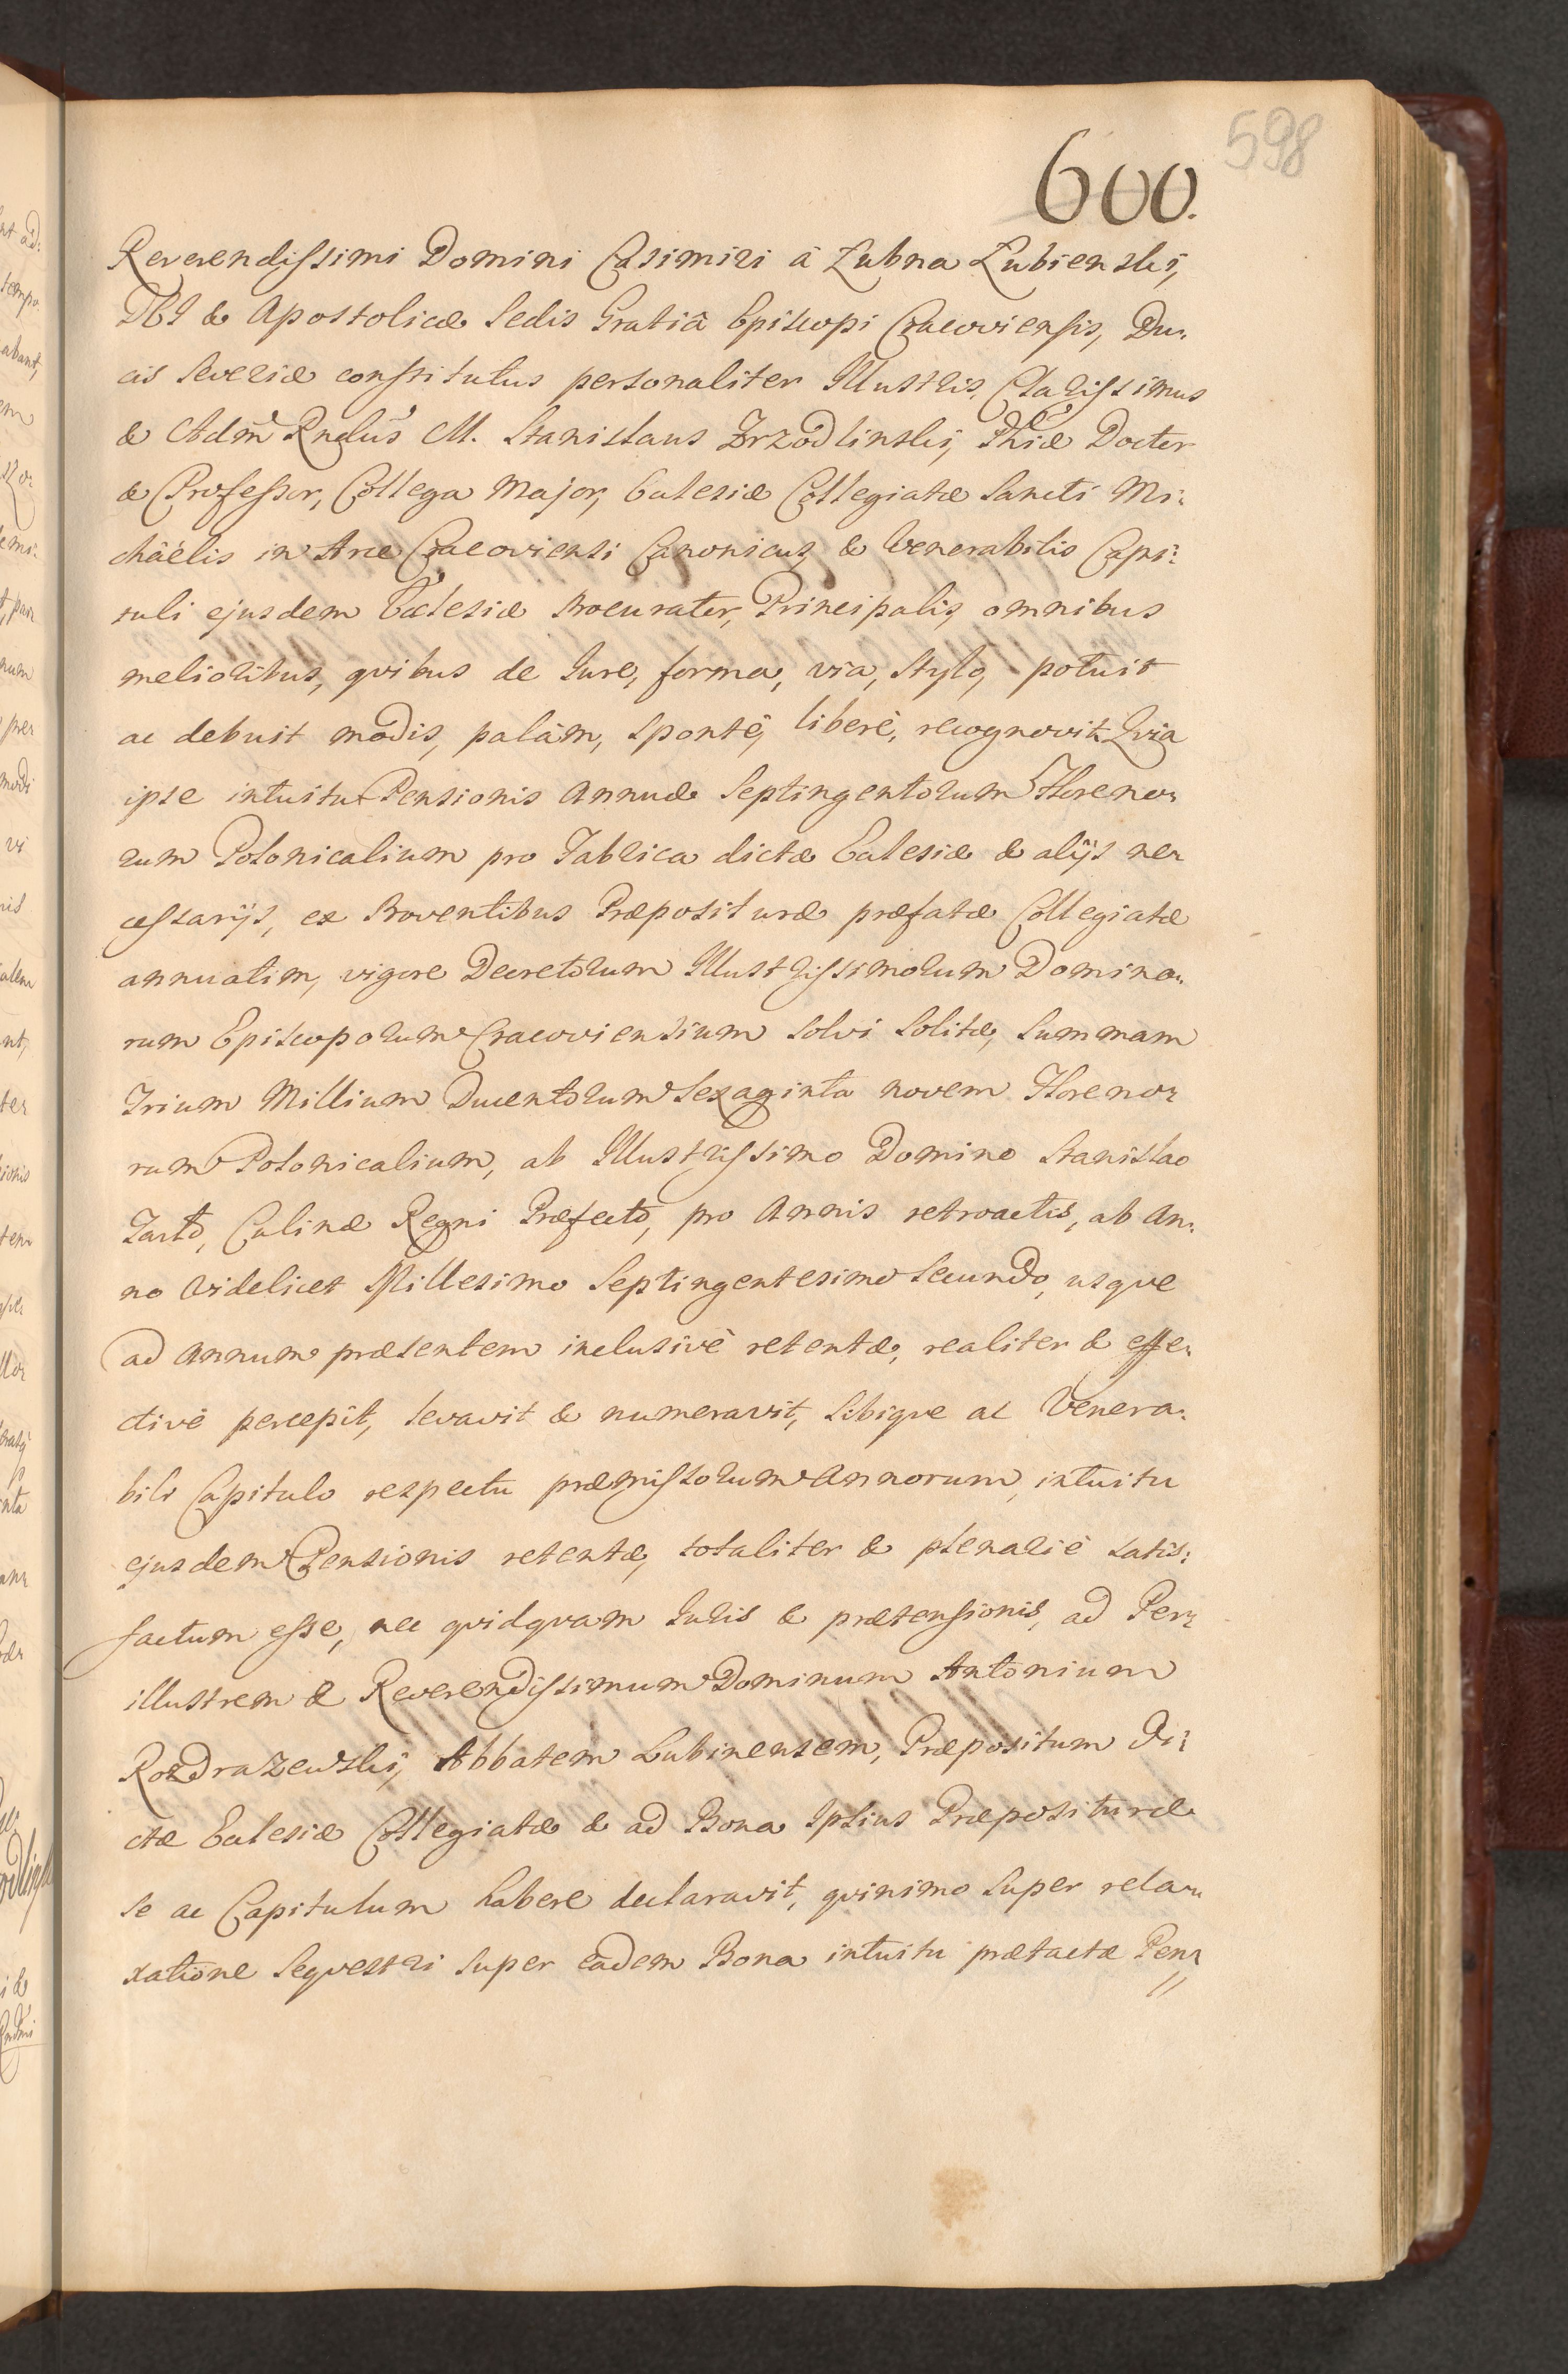 598
600.
Reverendissimi Domini Casimiri â Łubna Łubienski,
DEI & Apostolicæ Sedis Gratiâ Episcopi Cracoviensis, Du:
cis Severiæ constitutus personaliter Illustris, Clarissimus
& Adm Rndus M. Stanislaus Zrzodlinski, Phiæ Doctor
& Professor, Collega Major, Ecclesiæ Collegiatæ Sancti Mi:
châélis in Arce Cracoviensi Canonicus, & Venerabilis Capi:
tuli ejusdem Ecclesiæ Procurator, Principalis, omnibus
melioribus, qvibus de Iure, forma, via, stylo, potuit
ac debuit modis, palàm, spontè, liberè, recognovit. Qvia
ipse intuitu Pensionis Annuæ Septingentorum Floreno:
rum Polonicalium pro Fabrica dictæ Ecclesiæ & alijs ne:
cessarijs, ex Proventibus Præposituræ præfatæ Collegiatæ
annuatim, vigore Decretorum Illustrissimorum Domino:
rum Episcoporum Cracoviensium solvi solitæ, Summam
Trium Millium Ducentorum Sexaginta novem Floreno:
rum Polonicalium, ab Illustrissimo Domino Stanislao
Tarło, Culinæ Regni Præfecto, pro Annis retroactis, ab An:
no videlicet Millesimo Septingentesimo Secundo, usqve
ad Annum præsentem inclusivè retentæ, realiter & effe:
ctivè percepit, levavit & numeravit, Sibiqve ac Venera:
bili Capitulo respectu præmissorum Annorum, intuitu
ejusdem Pensionis retentæ, totaliter & plenariè satis:
factum esse, nec qvidqvam Iuris & prætensionis, ad Per:
illustrem & Reverendissimum Dominum Antonium
Rozdrazewski, Abbatem Lubinensem, Præpositum di:
ctæ Ecclesiæ Collegiatæ & ad Bona Ipsius Præposituræ
se ac Capitulum habere declaravit, qvinimo super rela:
xatione Seqvestri super eadem Bona intuitu prætactæ Pen: